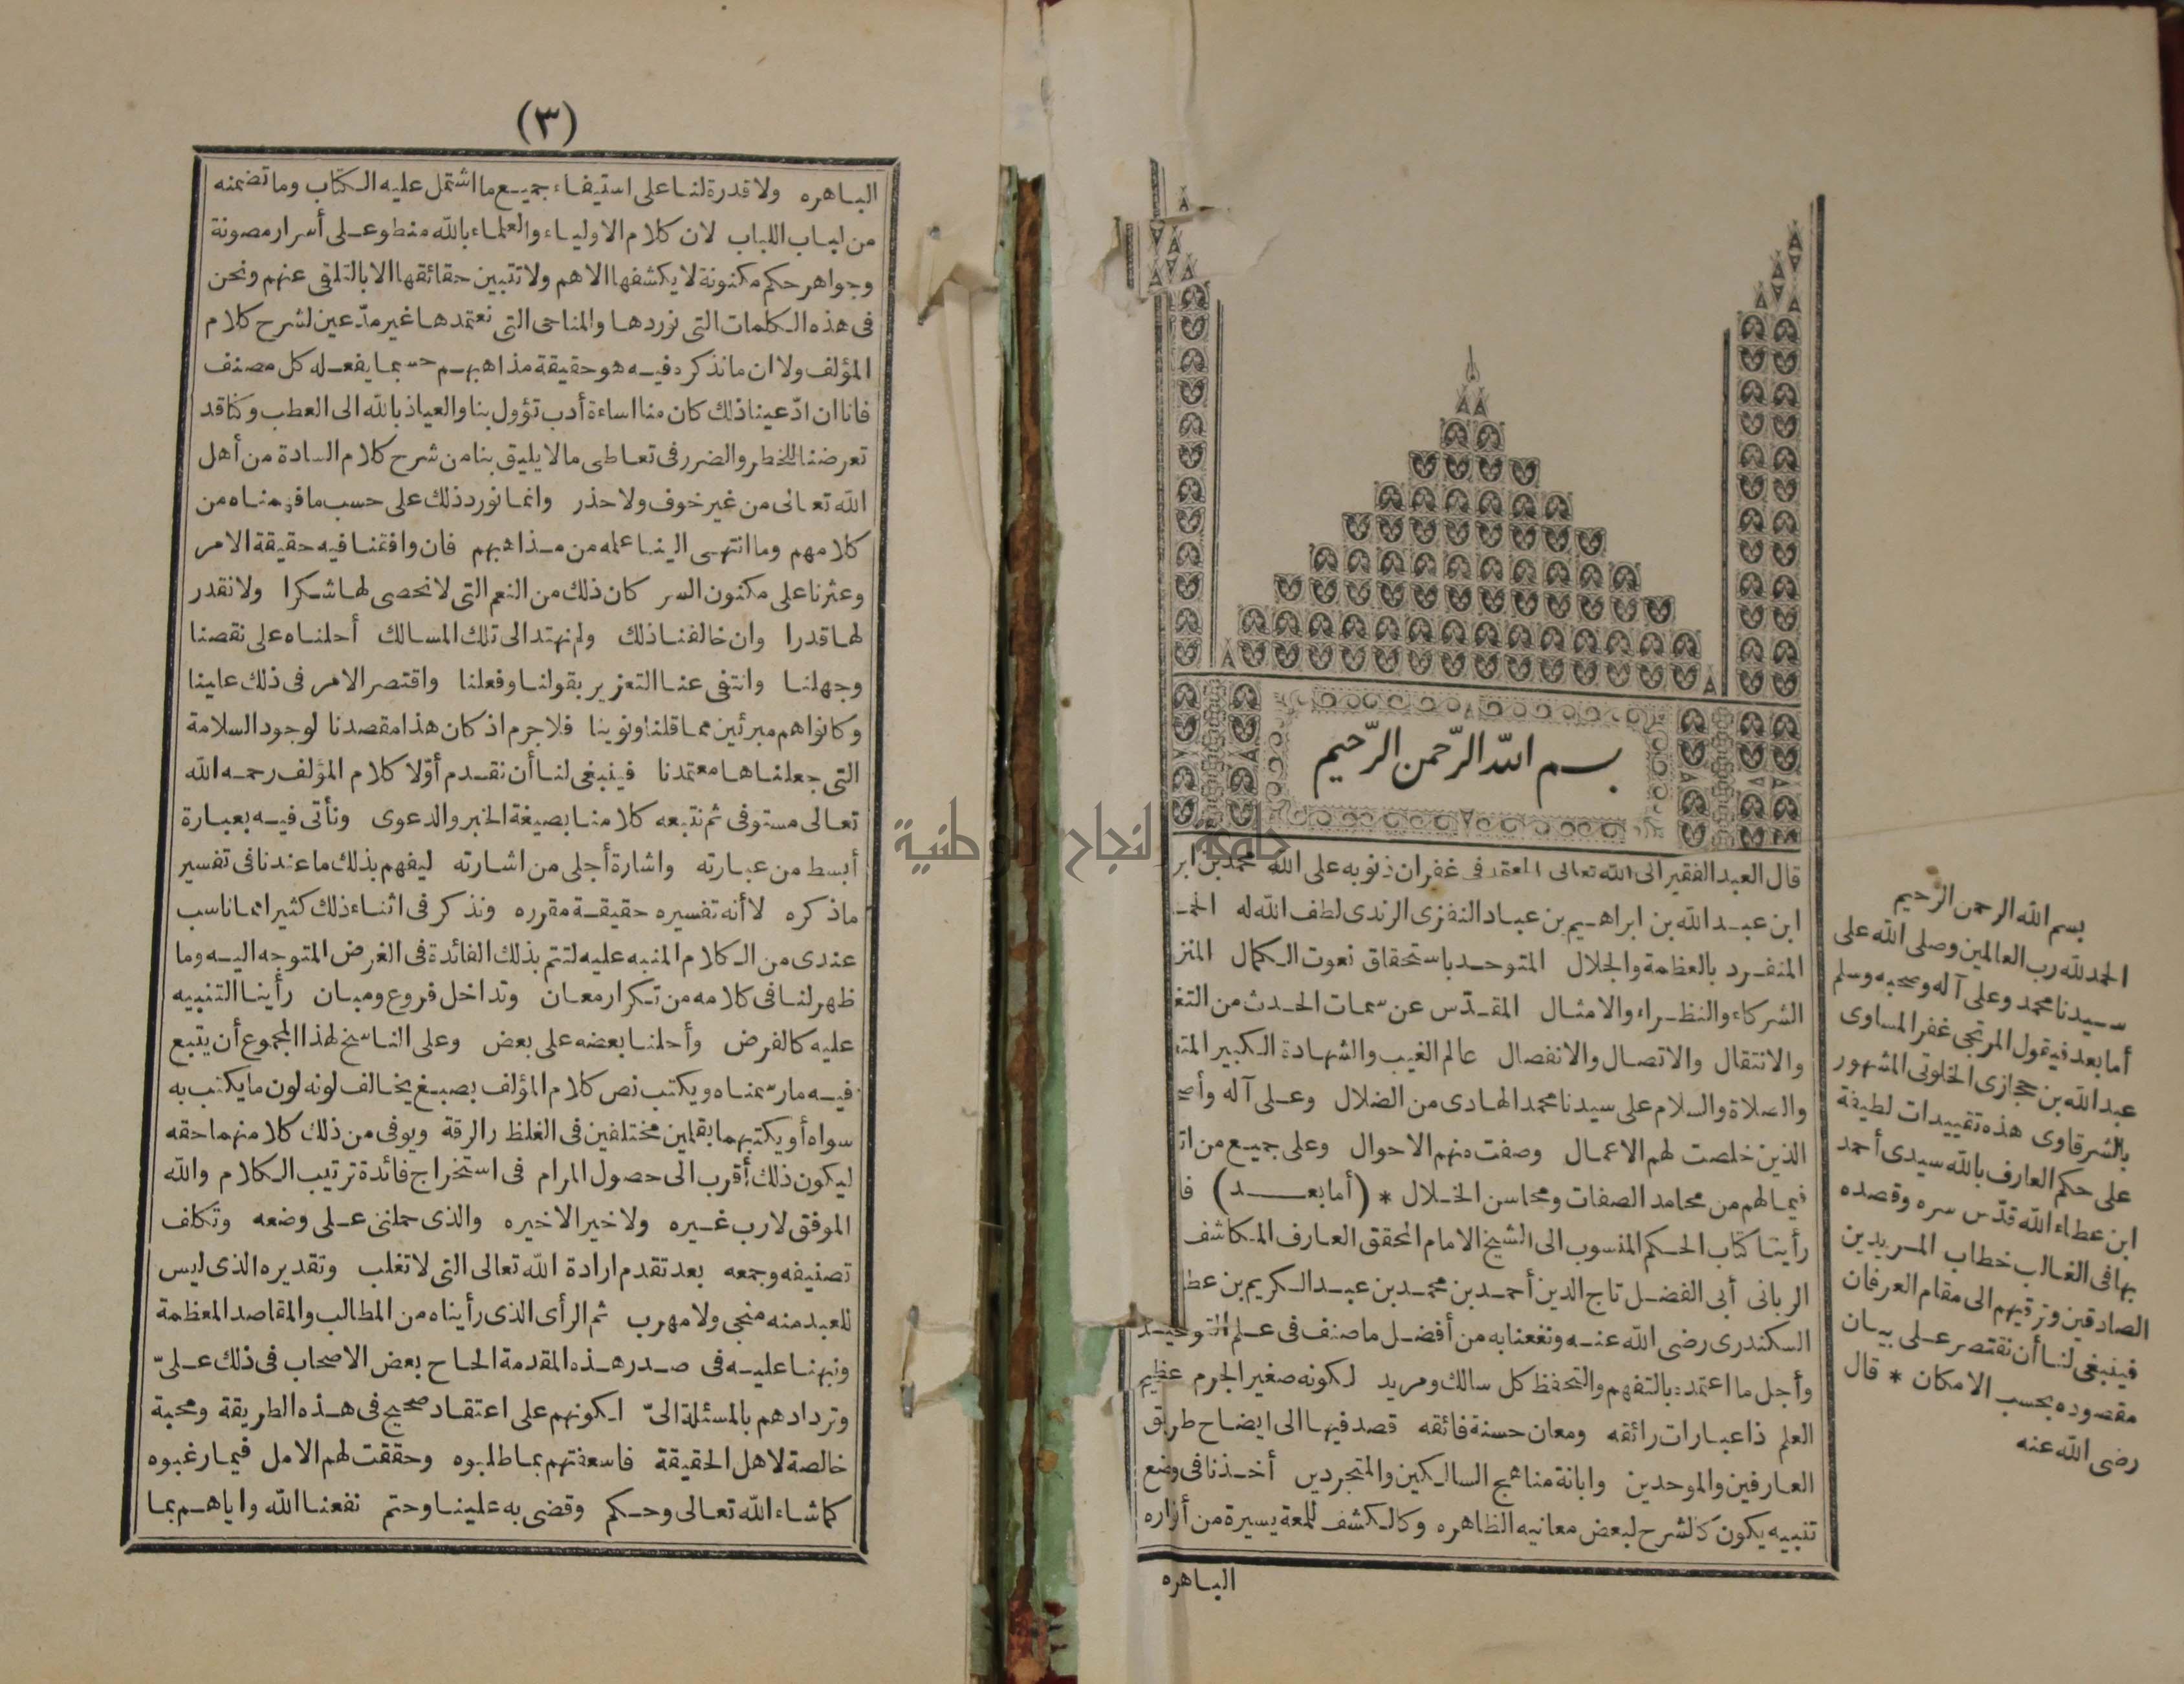 بسم الله الرحمن الرحيم
قال العبد الفقير الى الله تعالى المعتمد فى غفران ذنوبه على الله محمد بن ابر
ابن عبد الله بن ابراهيم بن عباد النفزى الرندى لطف الله له الحمـ
المنفرد بالعظمة والجلال المتوحد باستحقاق نعوت الكمال المنز
الشركاء والنظراء والامثال المقدّس عن سمات الحدث من التغ
والانتقال والاتصال والانفصال عالم الغيب والشهادة الكبير المتـ
والصلاة والسلام على سيدنا محمد الهادى من الضلال وعلى آله وأصـ
الذين خلصت لهم الاعمال وصفت منهم الاحوال وعلى جميع من اتـ
فيما لهم من محامد الصفات ومحاسن الخلال * (أما بعد) فا
رأينا كتاب الحكم المنسوب الى الشيخ الامام المحقق العارف المكاشف
الربانى أبى الفضل تاج الدين أحمد بن محمد بن عبد الكريم بن عطا
السكندرى رضى الله عنه ونفعنا به من أفضل ما صنف فى علم التوحيد
وأجل ما اعتمده بالتفهم والتحفظ كل سالك ومريد لكونه صغير الجرم عظيم
العلم ذا عبارات رائقه ومعان حسنة فائقه قصد فيها الى ايضاح طريق
العارفين والموحدين وابانة مناهج السالكين والمتجردين أخذنا فى وضع
تنبيه يكون كالشرح لبعض معانيه الظاهره وكالكشف للمعة يسيرة من أنواره
الباهره
بسم الله الرحمن الرحيم
الحمد لله رب العالمين وصلى الله على
سيدنا محمد وعلى آله وصحبه وسلم
أما بعد فيقول المرتجى غفر المساوى
عبد الله بن حجازى الخلوتى المشهور
بالشرقاوى هذه تقييدات لطيفة
على حكم العارف بالله سيدى أحمد
ابن عطاء الله قدّس سره وقصده
بها فى الغالب خطاب المريدين
الصادقين وترقيهم الى مقام العرفان
فينبغى لنا أن نقتصر على بيان
مقصوده بحسب الامكان * قال
رضى الله عنه
(٣)
الباهره ولا قدرة لنا على استيفاء جميع ما اشتمل عليه الكتاب وما تضمنه
من لباب اللباب لان كلام الاولياء والعلماء بالله منطو على أسرار مصونة
وجواهر حكم مكنونة لا يكشفها الا هم ولا تتبين حقائقها الا بالتلقى عنهم ونحن
فى هذه الكلمات التى نوردها والمناحى التى نعتمدها غير مدّعين لشرح كلام
المؤلف ولا ان ما نذكره فيه هو حقيقة مذاهبهم حسبما يفعله كل مصنف
فانا ان ادّعينا ذلك كان منا اساءة أدب تؤول بنا والعياذ بالله الى العطب وكنا قد
تعرضنا للخطر والضرر فى تعاطى ما لا يليق بنا من شرح كلام السادة من أهل
الله تعالى من غير خوف ولا حذر وانما نورد ذلك على حسب ما فهمناه من
كلامهم وما انتهى الينا علمه من مذاهبهم فان وافقنا فيه حقيقة الامر
وعثرنا على مكنون السر كان ذلك من النعم التى لا نحصى لها شكرا ولا نقدر
لها قدرا وان خالفنا ذلك ولم نهتد الى تلك المسالك أحلناه على نقصنا
وجهلنا وانتفى عنا التعزير بقولنا وفعلنا واقتصر الامر فى ذلك علينا
وكانوا هم مبرئين مما قلنا ونوينا فلا جرم اذ كان هذا مقصدنا لوجود السلامة
التى جعلناها معتمدنا فينبغى لنا أن نقدم أوّلا كلام المؤلف رحمه الله
تعالى مستوفى ثم نتبعه كلامنا بصيغة الخبر والدعوى ونأتى فيه بعبارة
أبسط من عبارته واشارة أجلى من اشارته ليفهم بذلك ما عندنا فى تفسير
ما ذكره لا أنه تفسيره حقيقة مقرره ونذكر فى اثناء ذلك كثيرا مما ناسب
عندى من الكلام المنبه عليه لتتم بذلك الفائدة فى الغرض المتوجه اليه وما
ظهر لنا فى كلامه من تكرار معان وتداخل فروع ومبان رأينا التنبيه
عليه كالفرض وأحلنا بعضه على بعض وعلى الناسخ لهذا المجموع أن يتبع
فيه ما رسمناه ويكتب نص كلام المؤلف بصبغ يخالف لونه لون ما يكتب به
سواه أو يكتبهما بقلمين مختلفين فى الغلظ والرقة ويوفى من ذلك كلا منهما حقه
ليكون ذلك أقرب الى حصول المرام فى استخراج فائدة ترتيب الكلام والله
الموفق لا رب غيره ولا خير الا خيره والذى حملنى على وضعه وتكلف
تصنيفه وجمعه بعد تقدم ارادة الله تعالى التى لا تغلب وتقديره الذى ليس
للعبد منه منجى ولا مهرب ثم الرأى الذى رأيناه من المطالب والمقاصد المعظمة
ونبهنا عليه فى صدر هذه المقدمة الحاح بعض الاصحاب فى ذلك علىّ
وتردادهم بالمسئلة الىّ لكونهم على اعتقاد صحيح فى هذه الطريقة ومحبة
خالصة لاهل الحقيقة فاسعفتهم بما طلبوه وحققت لهم الامل فيما رغبوه
كما شاء الله تعالى وحكم وقضى به علينا وحتم نفعنا الله واياهم بما
جامعة النجاح الوطنية